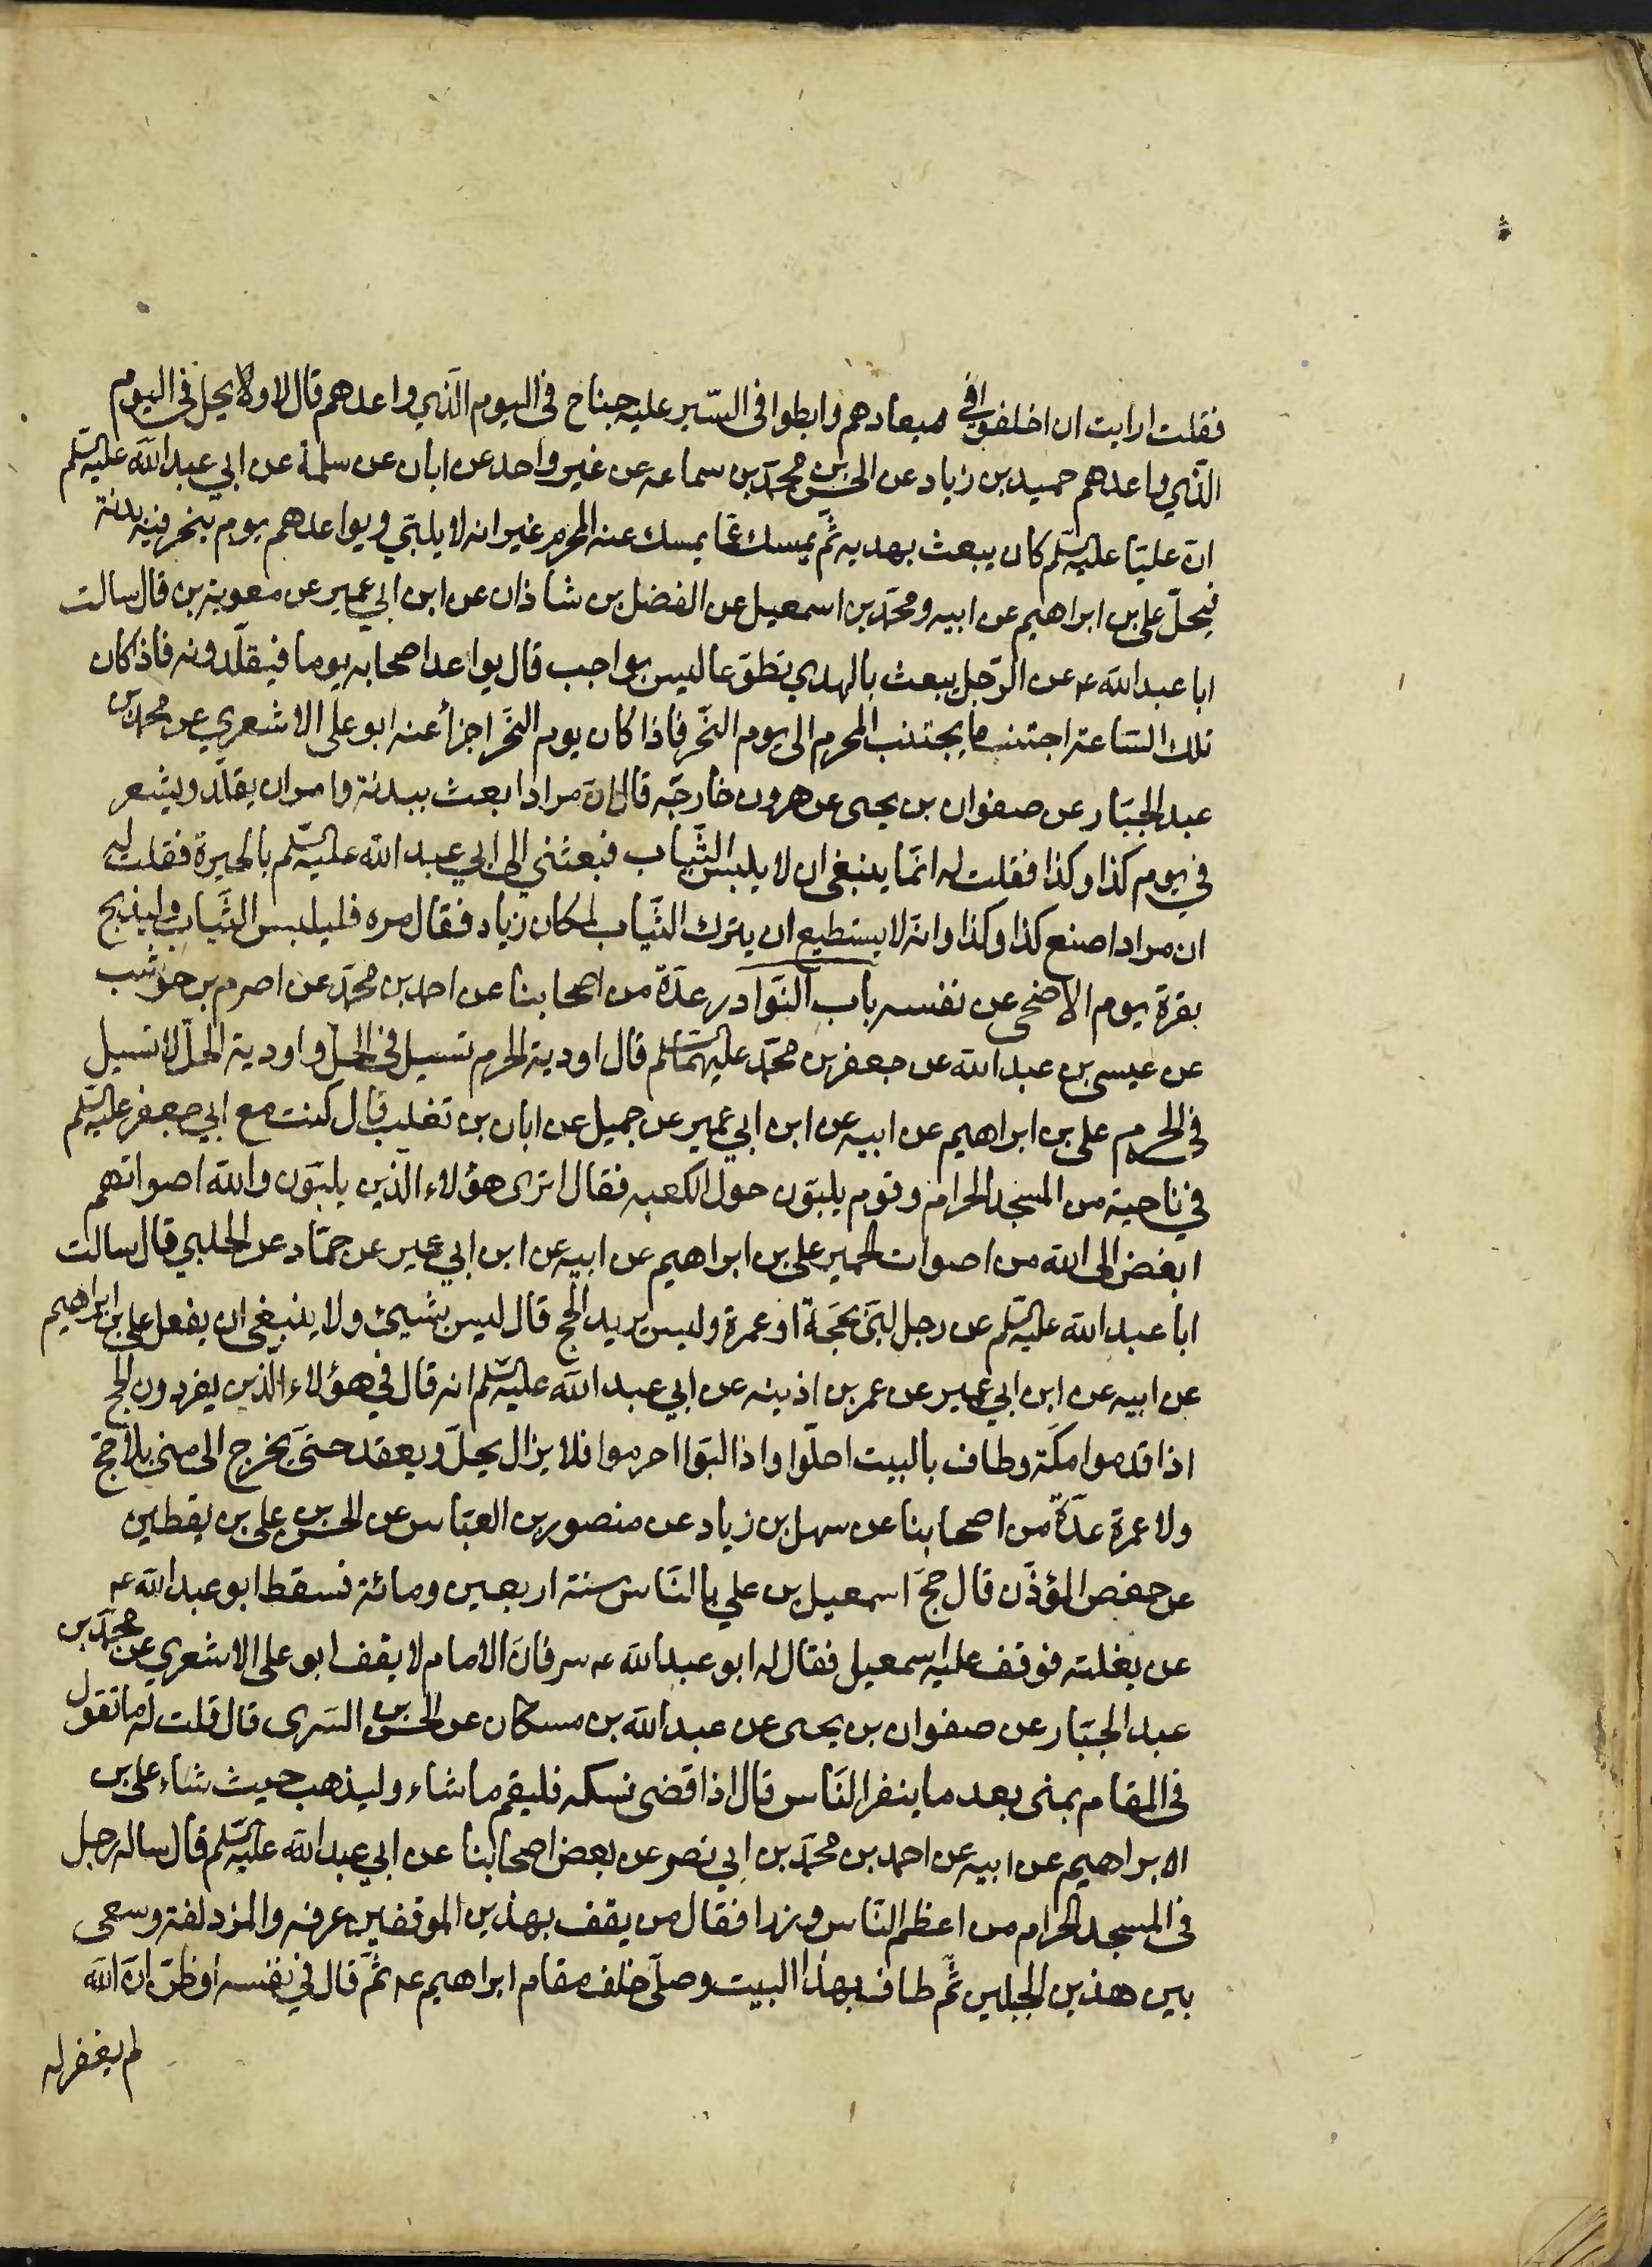 فقلت ارايت ان اخلفوا في ميعادهم وابطوا فى السّير عليه جناح فى اليوم الّذي واعدهم قال لا ولا يحل فى اليوم
الّذي واعدهم حميد بن زياد عن الحسن بن محمّد بن سماعه عن غير واحد عن ابان عن سلمة عن ابي عبد اللّه عليه السّلم
انّ عليّا عليه السّلم كان يبعث بهديه ثمّ يمسك عمّا يمسك عنه المحرم غير انه لا يلبّي ويواعدهم يوم ينحر فيه بدنة
فيحلّ على بن ابراهيم عن ابيه ومحمّد بن اسمعيل عن الفضل بن شاذان عن ابن ابي عمير عن معوية بن قال سالت
ابا عبد اللّه عه عن الرّجل يبعث بالهدي تطوّعا ليس بواجب قال يواعد اصحابه يوما فيقلّدونه فاذا كان
تلك السّاعة اجتنب ما يجتنب المحرم الى يوم النّحر فاذا كان يوم النّحر اجزأ عنه ابو على الاشعري عن محمّد بن
عبد الجبّار عن صفوان بن يحيى عن هرون خارجّه قال انّ مرادا بعث ببدنة وامر ان يقلّد ويشعر
في يوم كذا وكذا فقلت له انّما ينبغي ان لا يلبس الثّياب فبعثني الى ابي عبد اللّه عليه السّلم بالحيرة فقلت له
ان مرادا صنع كذا وكذا وانه لا يستطيع ان يترك الثّياب لمكان زياد فقال مره فليلبس الثّياب وليذبح
بقرة يوم الاضحى عن نفسه باب النّوادر عدّة من اصحابنا عن احمد بن محمّد عن اصرم بن حوشب
عن عيسى بن عبد اللّه عن جعفر بن محمّد عليهما السّلم قال اودية الحرم تسيل فى الحلّ واودية الحلّ لا تسيل
في الحرم على بن ابراهيم عن ابيه عن ابن ابي عمير عن جميل عن ابان بن تغلب قال كنت مع ابي جعفر عليه السّلم
في ناحية من المسجد الحرام وقوم يلبّون حول الكعبه فقال اترى هؤلاء الّذين يلبّون واللّه اصواتهم
ابغض الى اللّه من اصوات الحمير على بن ابراهيم عن ابيه عن ابن ابي عمير عن حمّاد عن الحلبي قال سالت
ابا عبد اللّه عليه السّلم عن رجل لبّى بحجّة او عمرة وليس يريد الحج قال ليس بشيئ ولا ينبغي ان يفعل على بن ابراهيم
عن ابيه عن ابن ابي عمير عن عمر بن اذينه عن ابي عبد اللّه عليه السّلم انه قال في هؤلاء الّذين يفردون الحج
اذا قدموا مكّة وطاف بالبيت احلّوا واذا لبّوا احرموا فلا يزال يحلّ ويعقد حتّى يخرج الى منى بلا حج
ولا عمرة عدّة من اصحابنا عن سهل بن زياد عن منصور بن العبّاس عن الحسن بن على بن يقطين
عن حفص المؤذّن قال حجّ اسمعيل بن علي بالنّاس سنة اربعين ومائة فسقط ابو عبد اللّه عه
عن بغلته فوقف عليه اسمعيل فقال له ابو عبد اللّه عه سر فانّ الامام لا يقف ابو على الاشعري عن محمّد بن
عبد الجبّار عن صفوان بن يحيى عن عبد اللّه بن مسكان عن الحسن بن السّرى قال قلت له ما تقول
فى المقام بمنى بعد ما ينفر النّاس قال اذا قضى نسكه فليقم ما شاء وليذهب حيث شاء على بن
الابراهيم عن ابيه عن احمد بن محمّد بن ابي نصر عن بعض اصحابنا عن ابي عبد اللّه عليه السّلم قال ساله رجل
فى المسجد الحرام من اعظم النّاس وزرا فقال من يقف بهذين الموقفين عرفه والمزدلفة وسعى
بين هذين الجبلين ثمّ طاف بهذا البيت وصلّى خلف مقام ابراهيم عه ثمّ قال في نفسه او ظنّ انّ اللّه
لم يغفر له